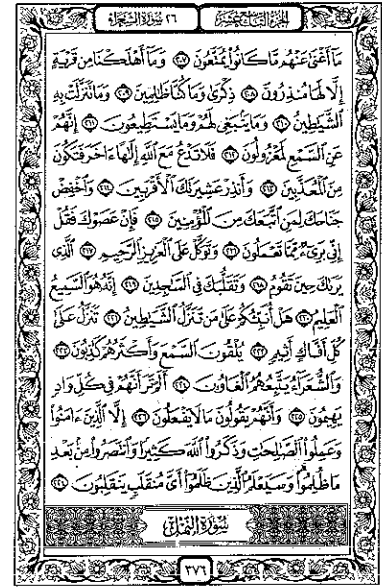 الجزء التاسع عشر
٢٦ سورة الشعراء
مَآ أَغْنَىٰ عَنْهُم مَّا كَانُوا۟ يُمَتَّعُونَ ٢٠٧ وَمَآ أَهْلَكْنَا مِن قَرْيَةٍ
إِلَّا لَهَا مُنذِرُونَ ٢٠٨ ذِكْرَىٰ وَمَا كُنَّا ظَـٰلِمِينَ ٢٠٩ وَمَا تَنَزَّلَتْ بِهِ
ٱلشَّيَـٰطِينُ ٢١٠ وَمَا يَنۢبَغِى لَهُمْ وَمَا يَسْتَطِيعُونَ ٢١١ إِنَّهُمْ
عَنِ ٱلسَّمْعِ لَمَعْزُولُونَ ٢١٢ فَلَا تَدْعُ مَعَ ٱللَّهِ إِلَـٰهًا ءَاخَرَ فَتَكُونَ
مِنَ ٱلْمُعَذَّبِينَ ٢١٣ وَأَنذِرْ عَشِيرَتَكَ ٱلْأَقْرَبِينَ ٢١٤ وَٱخْفِضْ
جَنَاحَكَ لِمَنِ ٱتَّبَعَكَ مِنَ ٱلْمُؤْمِنِينَ ٢١٥ فَإِنْ عَصَوْكَ فَقُلْ
إِنِّى بَرِىٓءٌ مِّمَّا تَعْمَلُونَ ٢١٦ وَتَوَكَّلْ عَلَى ٱلْعَزِيزِ ٱلرَّحِيمِ ٢١٧ ٱلَّذِى
يَرَىٰكَ حِينَ تَقُومُ ٢١٨ وَتَقَلُّبَكَ فِى ٱلسَّـٰجِدِينَ ٢١٩ إِنَّهُۥ هُوَ ٱلسَّمِيعُ
ٱلْعَلِيمُ ٢٢٠ هَلْ أُنَبِّئُكُمْ عَلَىٰ مَن تَنَزَّلُ ٱلشَّيَـٰطِينُ ٢٢١ تَنَزَّلُ عَلَىٰ
كُلِّ أَفَّاكٍ أَثِيمٍ ٢٢٢ يُلْقُونَ ٱلسَّمْعَ وَأَكْثَرُهُمْ كَـٰذِبُونَ ٢٢٣
وَٱلشُّعَرَآءُ يَتَّبِعُهُمُ ٱلْغَاوُۥنَ ٢٢٤ أَلَمْ تَرَ أَنَّهُمْ فِى كُلِّ وَادٍ
يَهِيمُونَ ٢٢٥ وَأَنَّهُمْ يَقُولُونَ مَا لَا يَفْعَلُونَ ٢٢٦ إِلَّا ٱلَّذِينَ ءَامَنُوا۟
وَعَمِلُوا۟ ٱلصَّـٰلِحَـٰتِ وَذَكَرُوا۟ ٱللَّهَ كَثِيرًا وَٱنتَصَرُوا۟ مِنۢ بَعْدِ
مَا ظُلِمُوا۟ وَسَيَعْلَمُ ٱلَّذِينَ ظَلَمُوٓا۟ أَىَّ مُنقَلَبٍ يَنقَلِبُونَ ٢٢٧
سورة النمل
٣٧٦